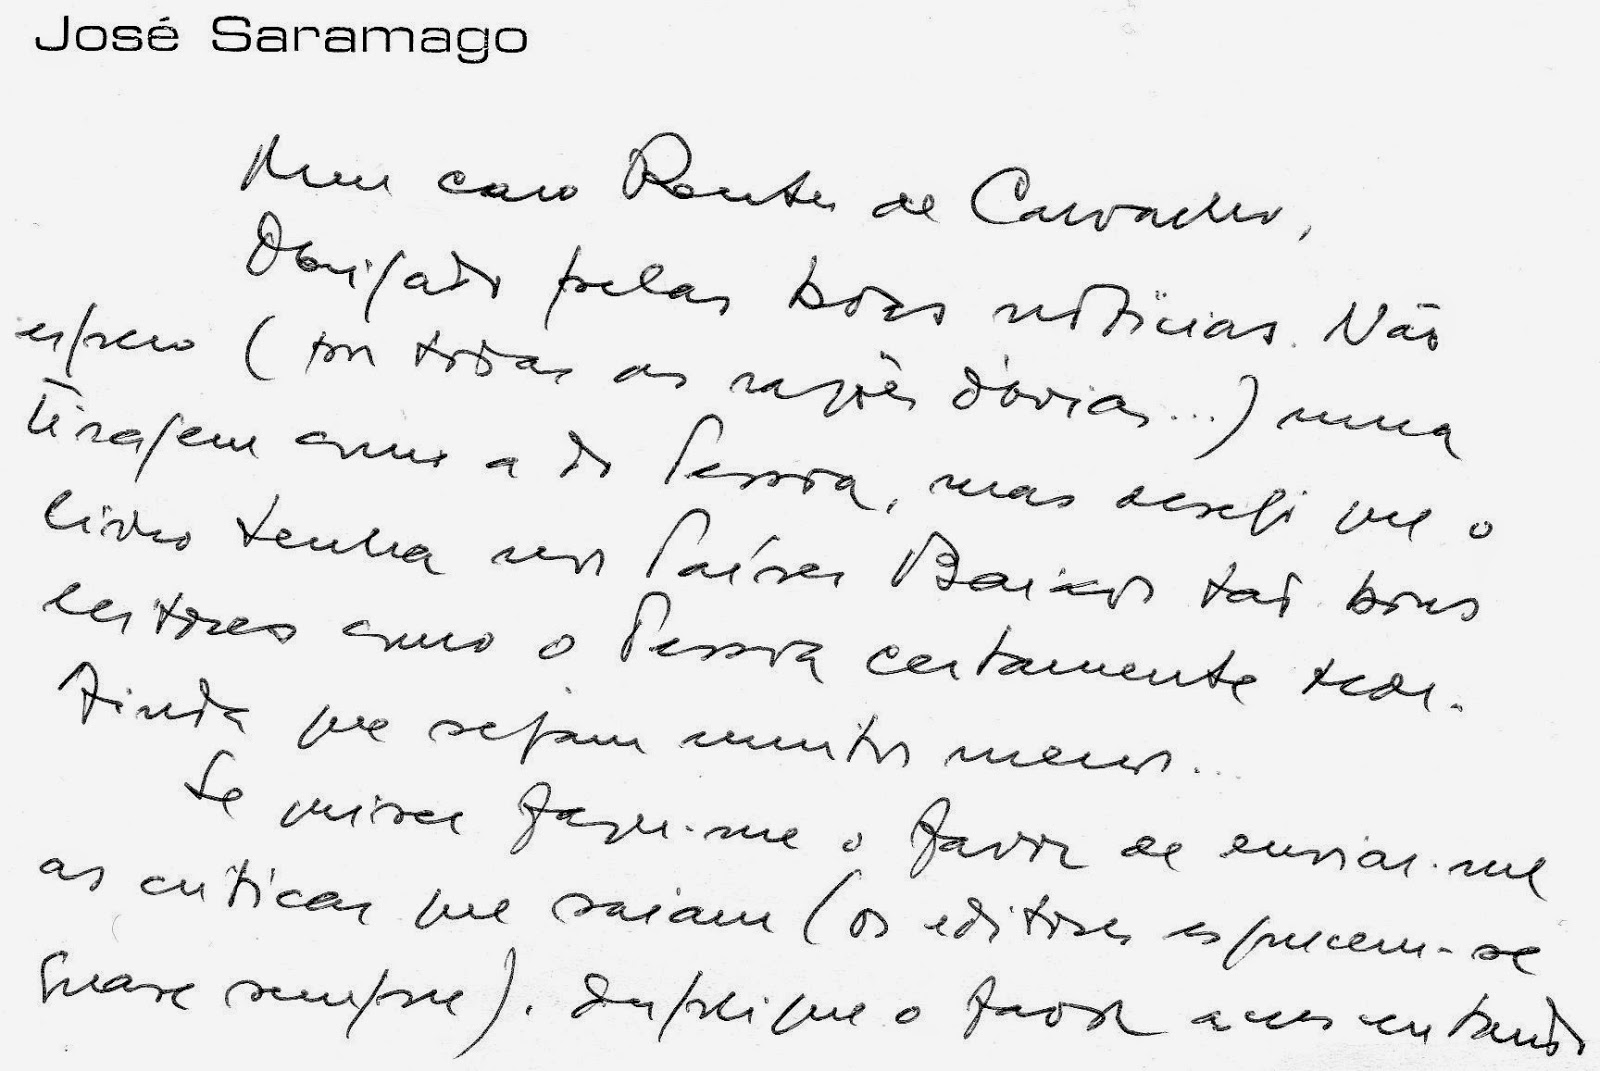 José Saramago
Meu caro Rentes de Carvalho,
Obrigado pelas boas notícias. Não
espero (por todas as razões óbvias...) uma
tiragem como a do Pessoa, mas desejo que o
livro tenha nos Países Baixos tão bons
leitores como o Pessoa certamente teve.
Ainda que sejam muito menos...
Se puder faça-me o favor de enviar-me
as críticas que saiam (os editores esquecem-se
quase sempre). Duplique o favor acrescentando